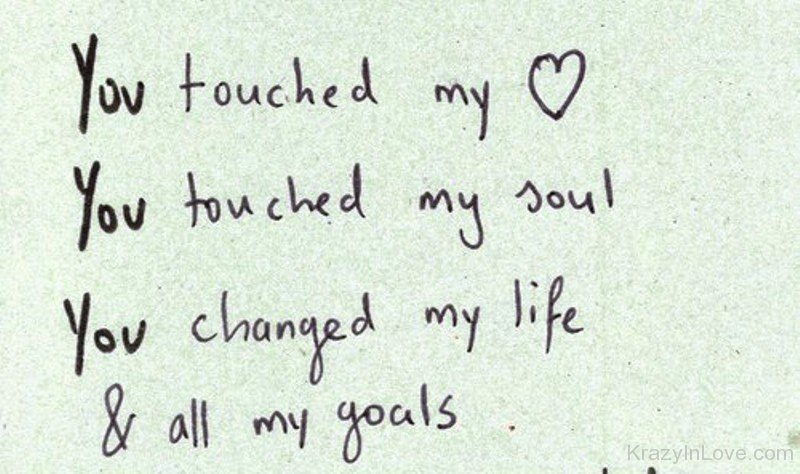 You touched my ♡
You touched my soul
You changed my life
& all my goals
KrazyInLove.com